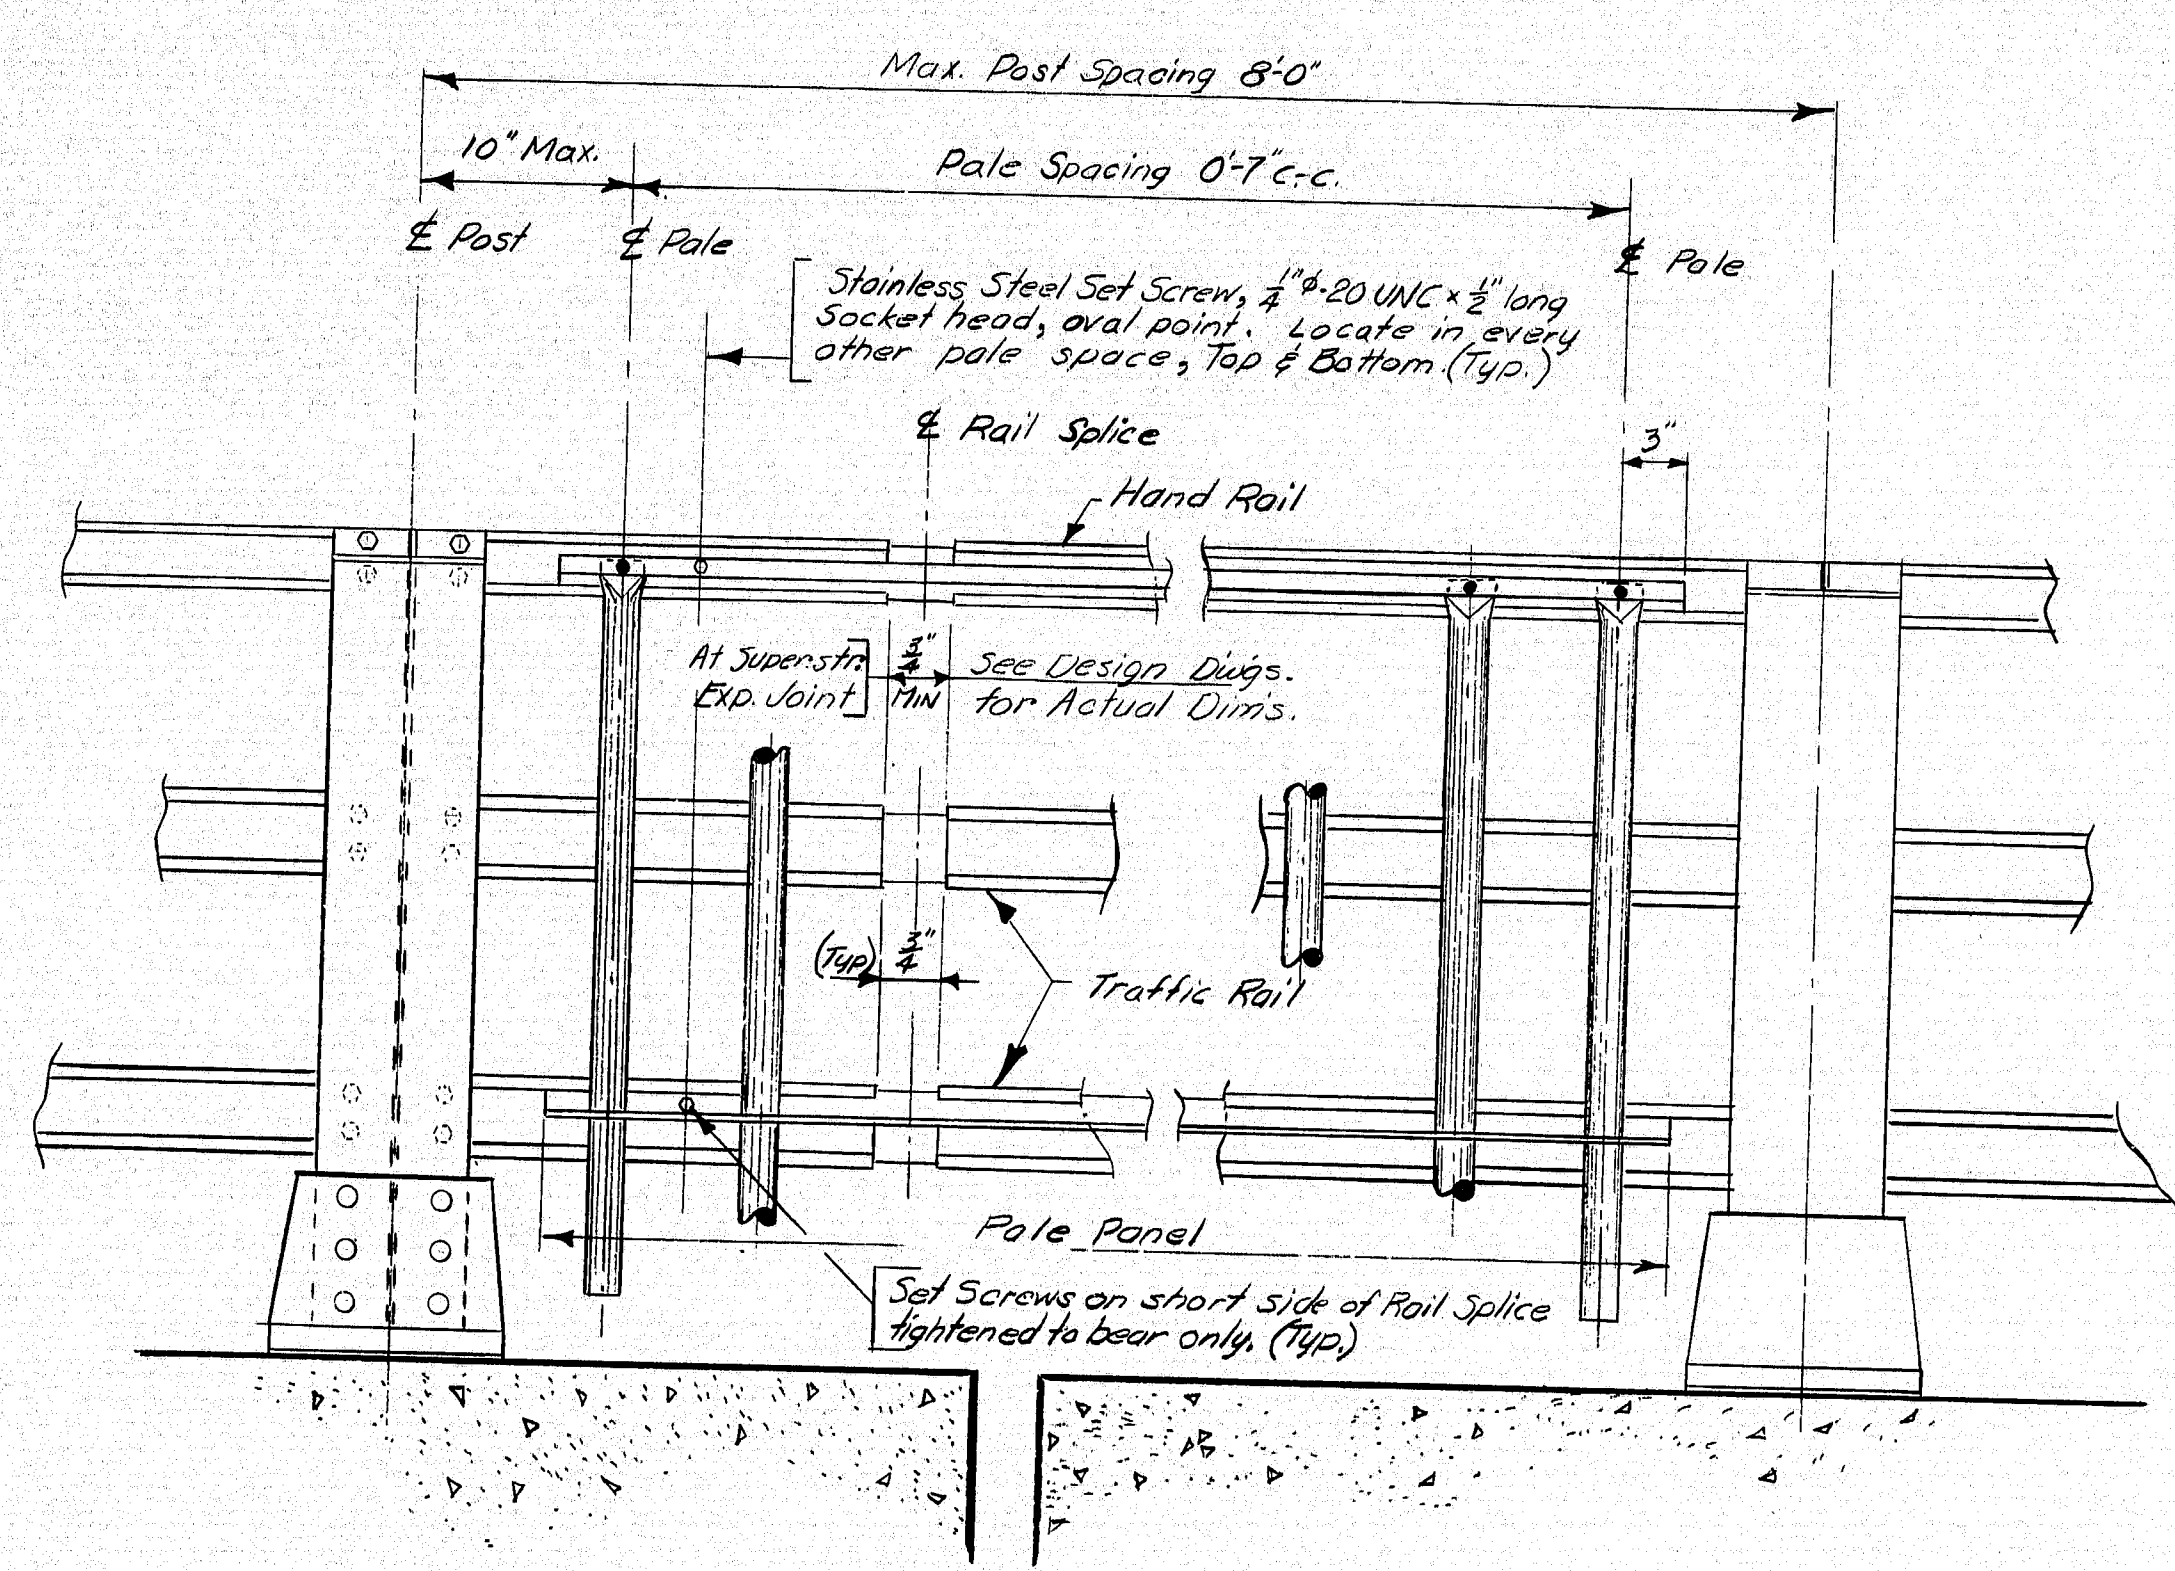 Max. Post Spacing 8'-0"
10" Max.
Pale Spacing 0'-7" c.-c.
℄ Post
℄ Pale
℄ Pale
Stainless Steel Set Screw, 1/4"ϕ-20 UNC x 1/2" long
Socket head, oval point. Locate in every
other pale space, Top & Bottom. (Typ.)
℄ Rail Splice
3"
Hand Rail
At Superstr.
Exp. Joint
3/4"
MIN
See Design Dwgs.
for Actual Dim's.
(Typ) 3/4"
Traffic Rail
Pale Panel
Set Screws on short side of Rail Splice
tightened to bear only. (Typ.)